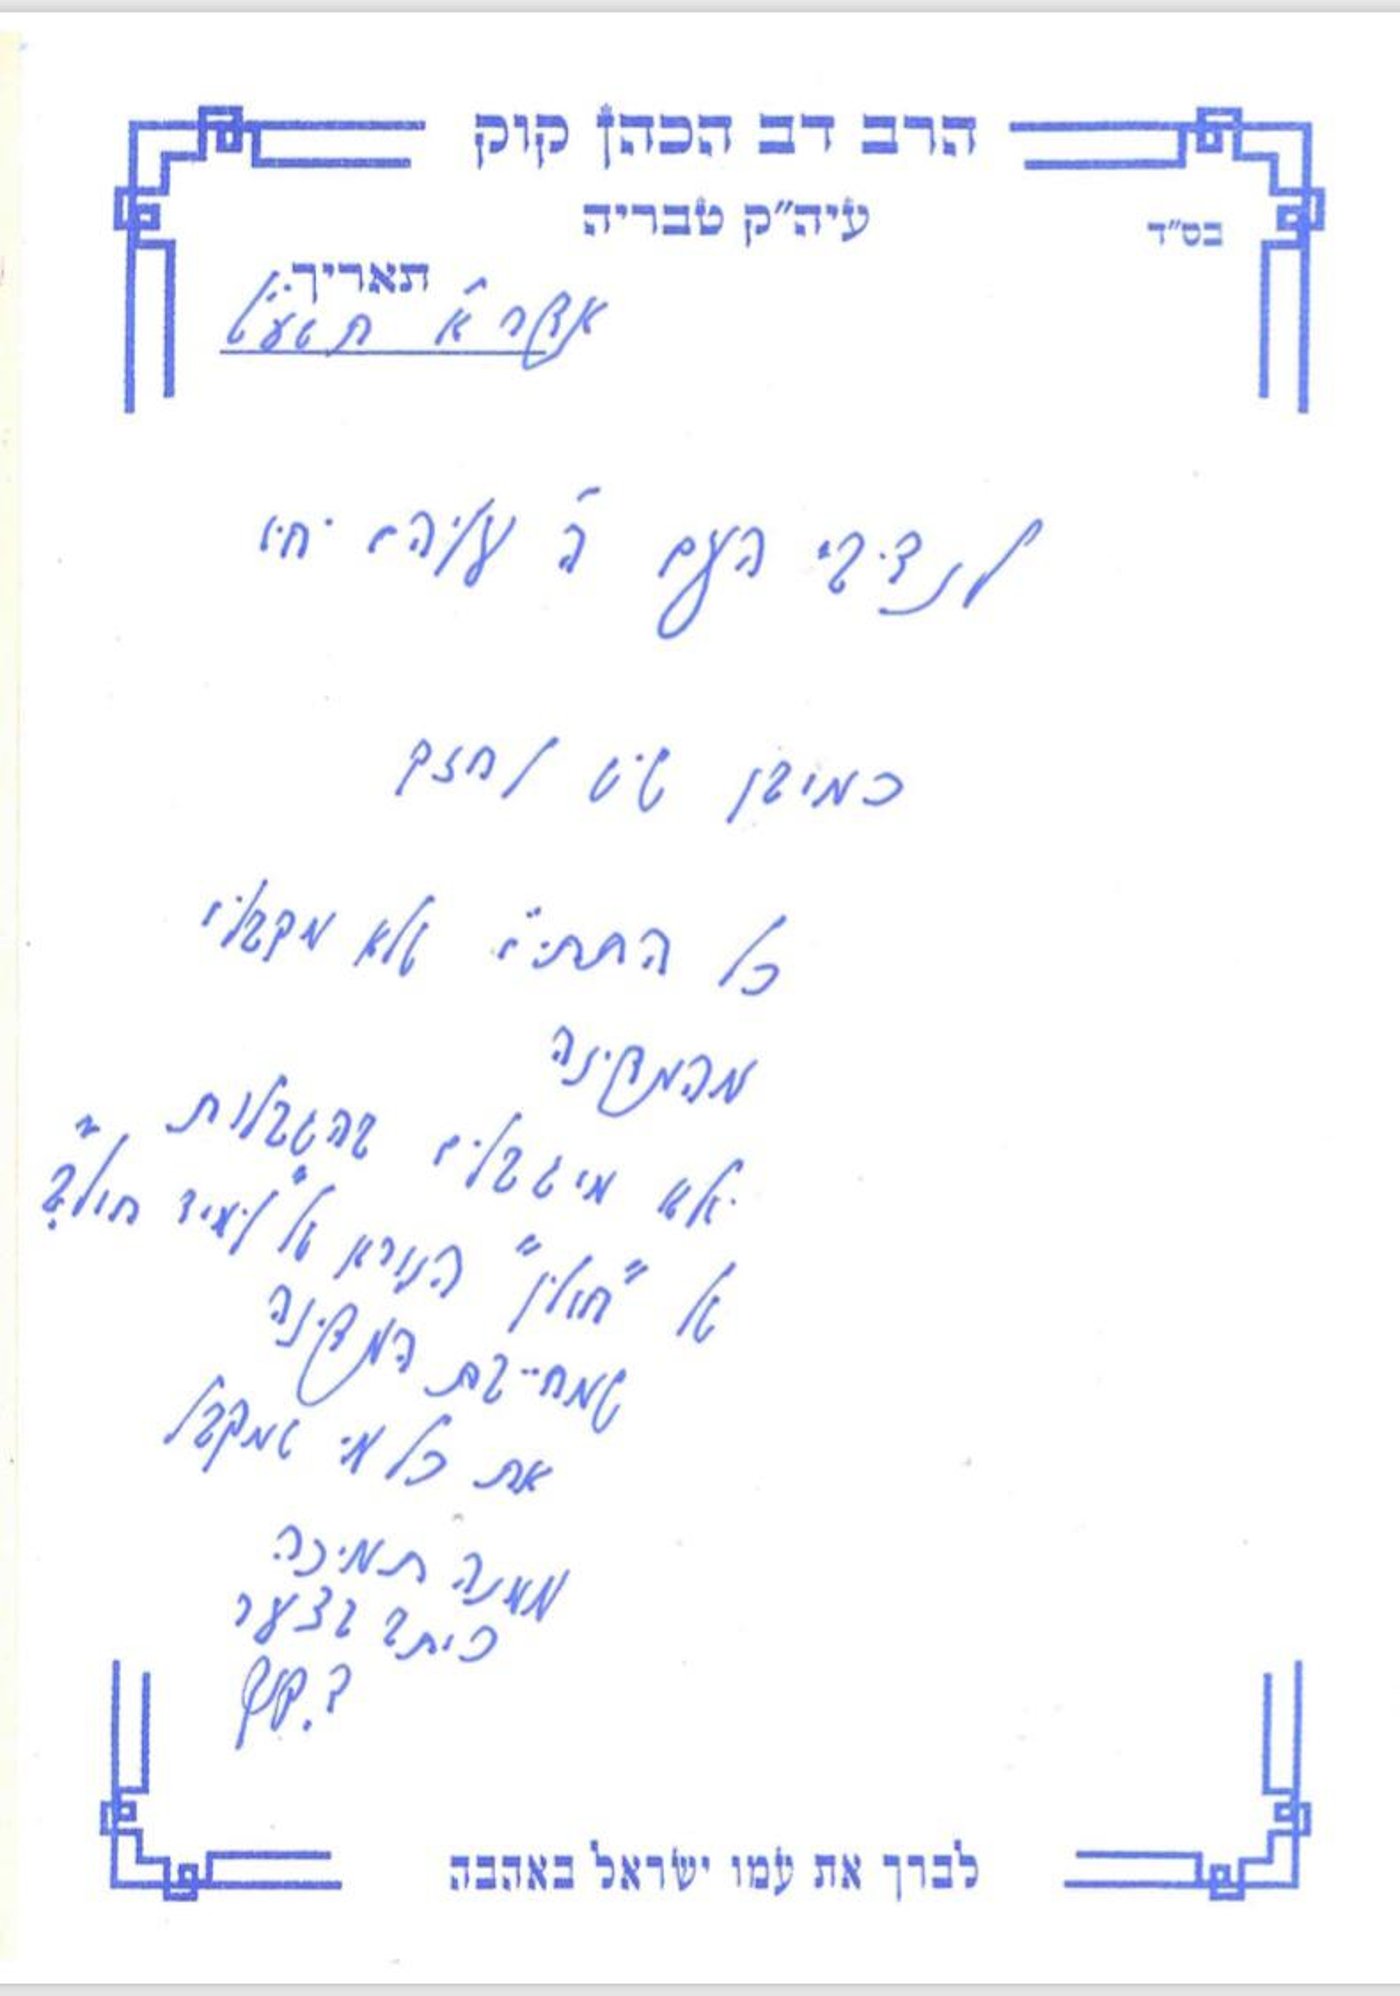 הרב דב הכהן קוק
עיה״ק טבריה
בס״ד
תאריך:
אדר א׳ תשע״ט
לנדיבי העם ה׳ עליהם יחיו
כמובן שיש לחזק
כל התתי״ם שלא מקבלים
מהמדינה
ולא מוגבלים בהגבלות
של ״חולין״ הנורא של לימוד חול
שמחייבת המדינה
את כל מי שמקבל
ממנה תמיכה
כותב בצער
ד. קוק
לברך את עמו ישראל באהבה